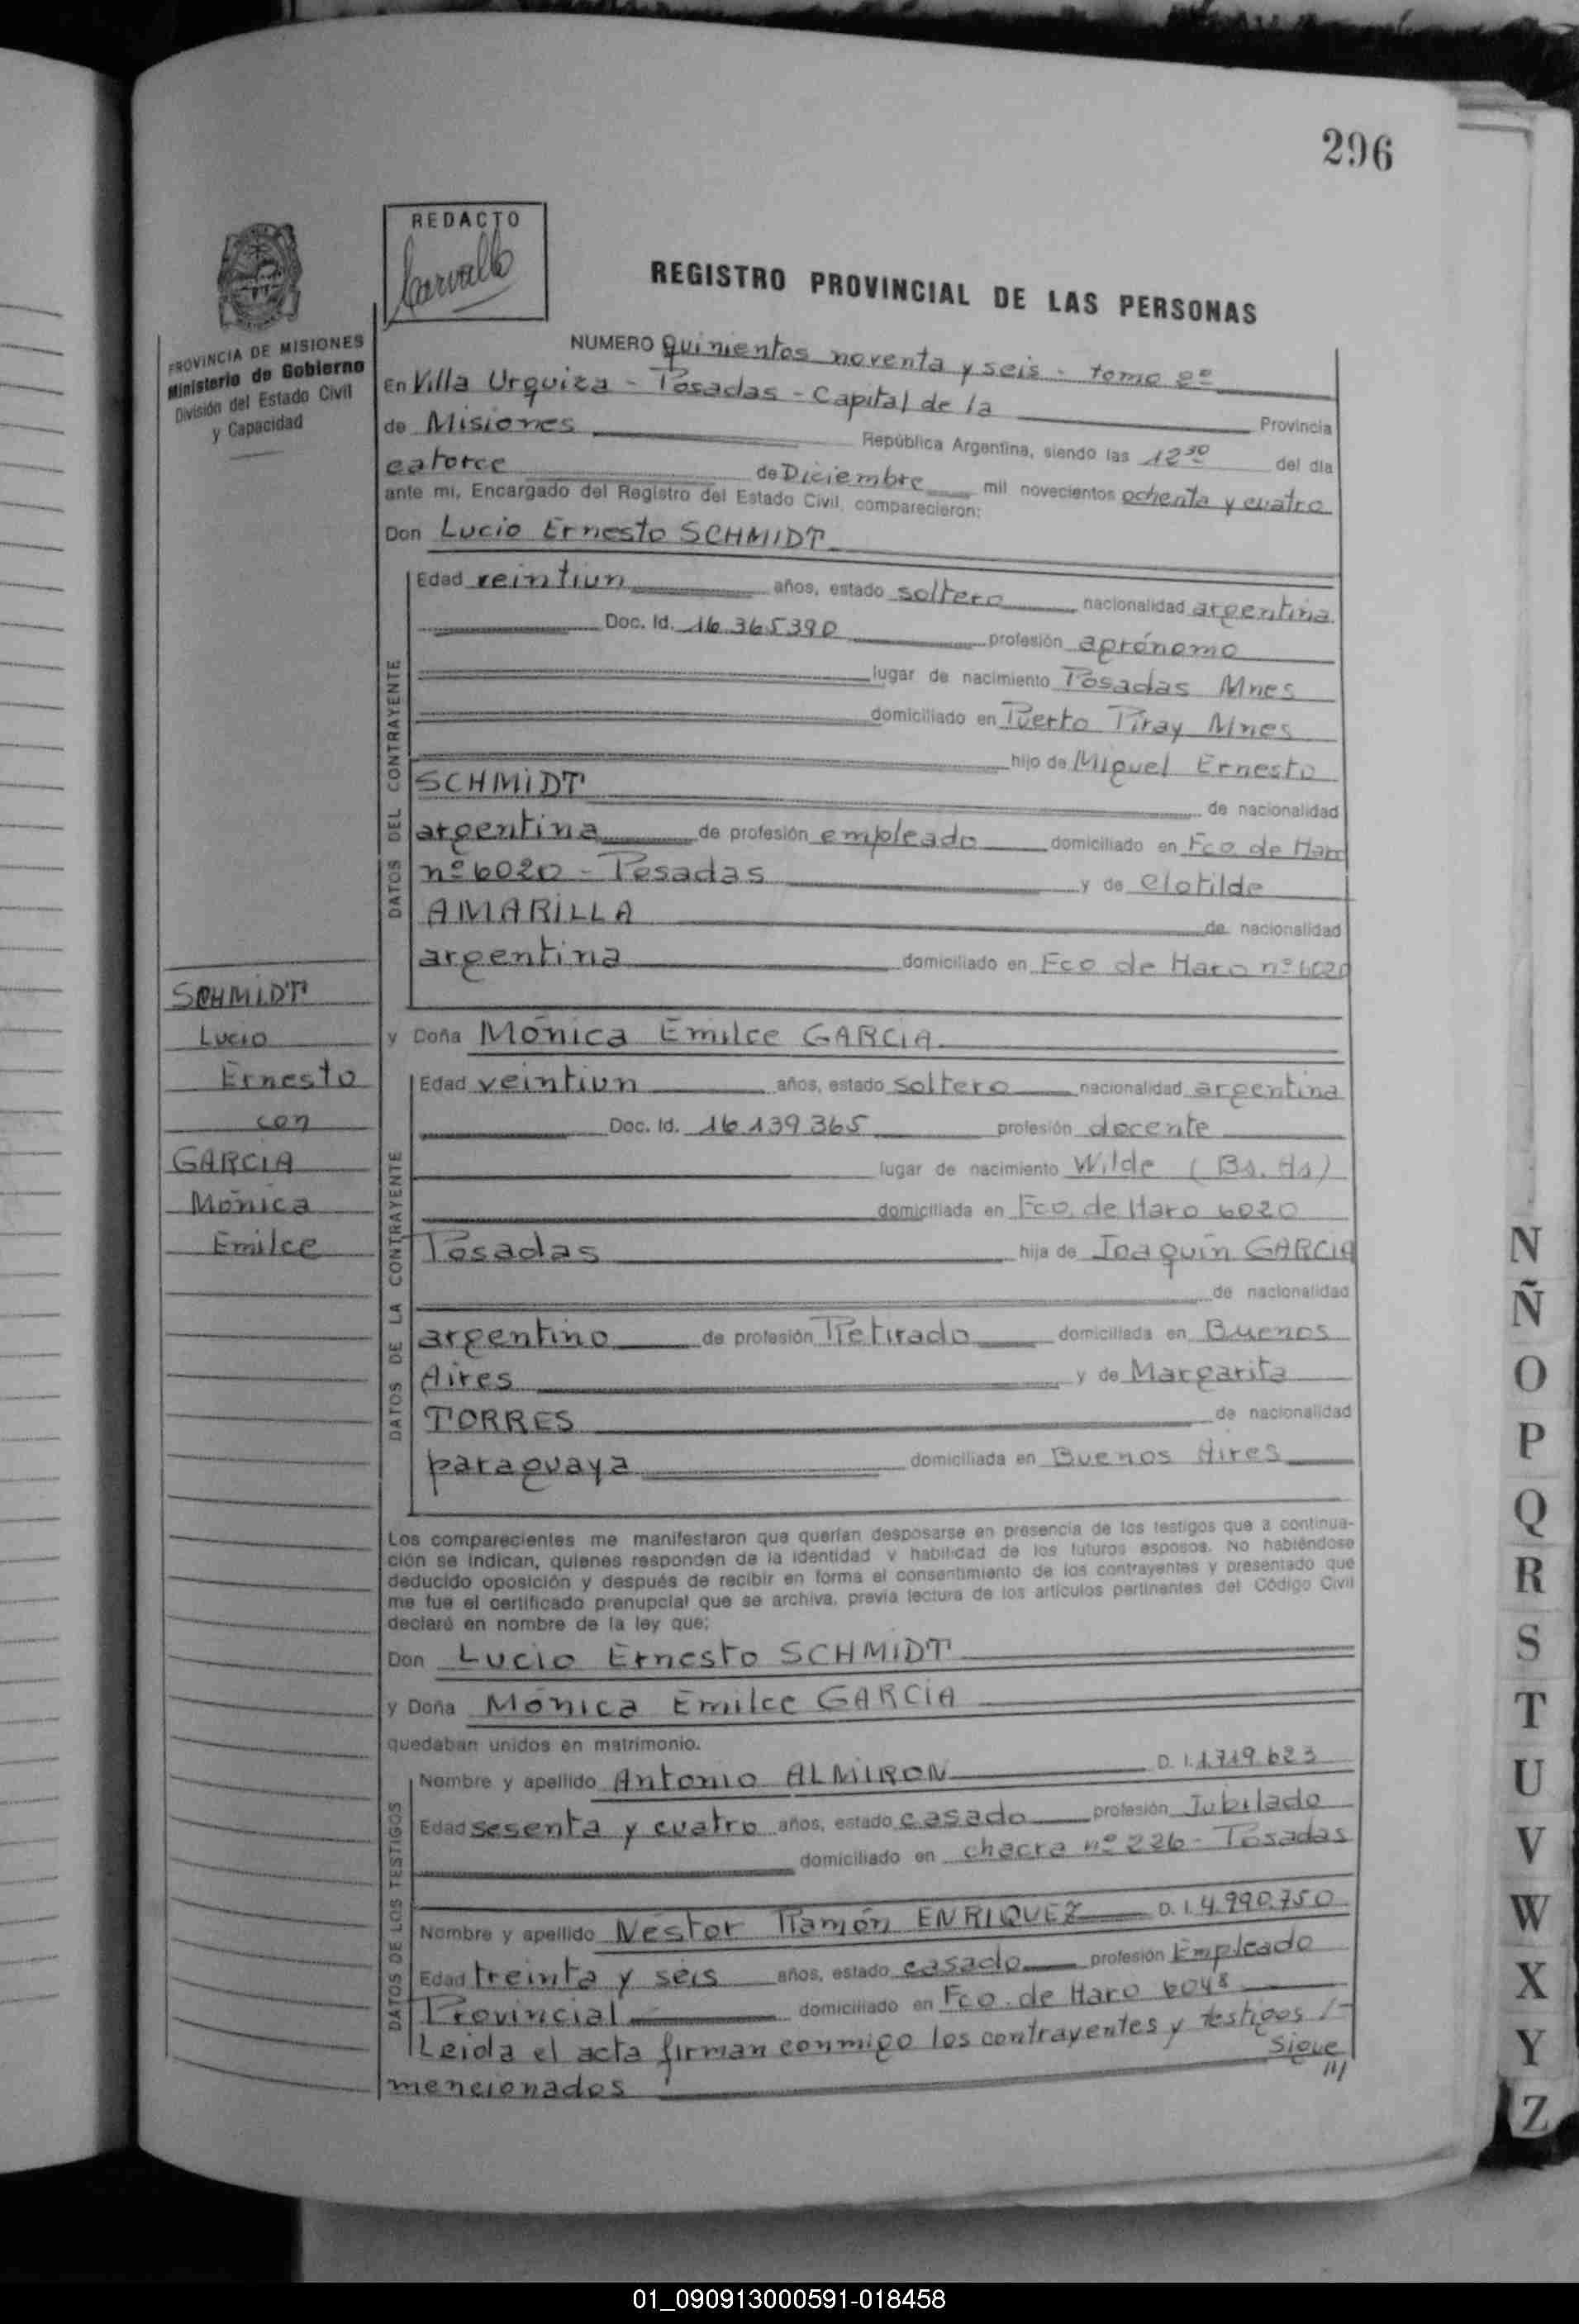 296
REDACTO
Carvallo
REGISTRO PROVINCIAL DE LAS PERSONAS
PROVINCIA DE MISIONES
Ministerio de Gobierno
División del Estado Civil
y Capacidad
NUMERO quinientos noventa y seis - tomo 2º
En Villa Urquiza - Posadas - Capital de la Provincia
de Misiones República Argentina, siendo las 12 30 del día
catorce de Diciembre mil novecientos ochenta y cuatro
ante mi, Encargado del Registro del Estado Civil, comparecieron:
Don Lucio Ernesto SCHMIDT
DATOS DEL CONTRAYENTE
Edad veintiun años, estado soltero nacionalidad argentina
Doc. Id. 16.365390 profesión agrónomo
lugar de nacimiento Posadas Mnes
domiciliado en Puerto Piray Mnes
hijo de Miguel Ernesto
SCHMIDT de nacionalidad
argentina de profesión empleado domiciliado en Fco de Haro
nº 6020 - Posadas y de Clotilde
AMARILLA de nacionalidad
argentina domiciliado en Fco de Haro nº 6020
SCHMIDT
Lucio
Ernesto
con
GARCIA
Mónica
Emilce
y Doña Mónica Emilce GARCIA
DATOS DE LA CONTRAYENTE
Edad veintiun años, estado soltero nacionalidad argentina
Doc. Id. 16 139 365 profesión docente
lugar de nacimiento Wilde (Bs. As)
domiciliada en Fco. de Haro 6020
Posadas hija de Joaquín GARCIA
de nacionalidad
argentino de profesión Retirado domiciliada en Buenos
Aires y de Margarita
TORRES de nacionalidad
paraguaya domiciliada en Buenos Aires
Los comparecientes me manifestaron que querían desposarse en presencia de los testigos que a continua-
ción se indican, quienes responden de la identidad y habilidad de los futuros esposos. No habiéndose
deducido oposición y después de recibir en forma el consentimiento de los contrayentes y presentado que
me fue el certificado prenupcial que se archiva, previa lectura de los artículos pertinentes del Código Civil
declaré en nombre de la ley que:
Don Lucio Ernesto SCHMIDT
y Doña Mónica Emilce GARCIA
quedaban unidos en matrimonio.
DATOS DE LOS TESTIGOS
Nombre y apellido Antonio ALMIRON D. I. 1.719.623
Edad sesenta y cuatro años, estado casado profesión Jubilado
domiciliado en chacra nº 226 - Posadas
Nombre y apellido Néstor Ramón ENRIQUEZ D. I. 4.990.750
Edad treinta y seis años, estado casado profesión Empleado
Provincial domiciliado en Fco. de Haro 6048
Leida el acta firman conmigo los contrayentes y testigos /-
mencionados Sigue
///
N
Ñ
O
P
Q
R
S
T
U
V
W
X
Y
Z
01_090913000591-018458